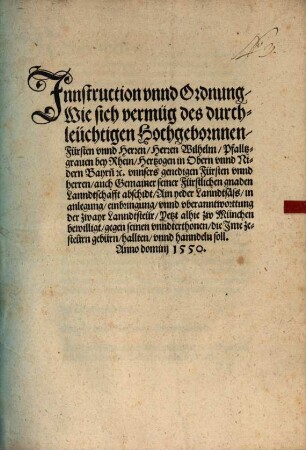 Innstruction vnnd Ordnung/
Wie sich vermüg des durch-
leüchtigen Hochgebornnen/
Fürsten vnnd Herren/ Herren Wilhelm/ Pfalltz-
grauen bey Rhein/ Hertzogen in Obern vnnd Ni-
dern Bayrñ ꝛc. vnnsers genedigen Fürsten vnnd
herren/ auch Gemainer seiner Fürstlichen gnaden
Lanndtschafft abschidt/ Ain yeder Lanndtsäß/ in
anlegung/ einbringung/ vnnd vberanntworttung
der zwayr Lanndtsteür/ Yetzt alhie zw München
bewilligt/ gegen seinen vnndterthonen/ die Jme ze-
steürn gebürn/ hallten/ vnnd hanndeln soll.
Anno dominj 1550.